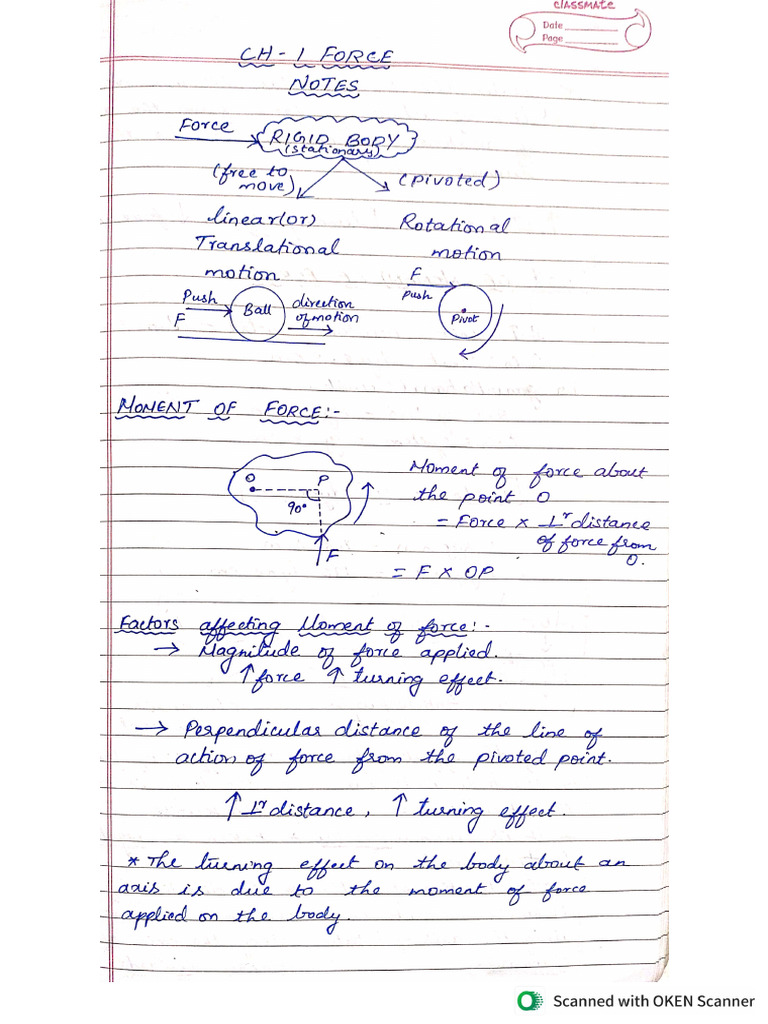 classmate
Date
Page
CH - 1 FORCE
NOTES
Force
RIGID BODY
(stationary)
(free to
move)
(pivoted)
linear(or)
Translational
motion
Rotational
motion
Push
F
Ball
direction
of motion
F
push
Pivot
MOMENT OF FORCE:-
O
P
90°
F
Moment of force about
the point O
= Force × ⊥r distance
of force from
O.
= F × OP
Factors affecting Moment of force:-
→ Magnitude of force applied.
↑ force ↑ turning effect.
→ Perpendicular distance of the line of
action of force from the pivoted point.
↑ ⊥r distance, ↑ turning effect.
* The turning effect on the body about an
axis is due to the moment of force
applied on the body.
Scanned with OKEN Scanner